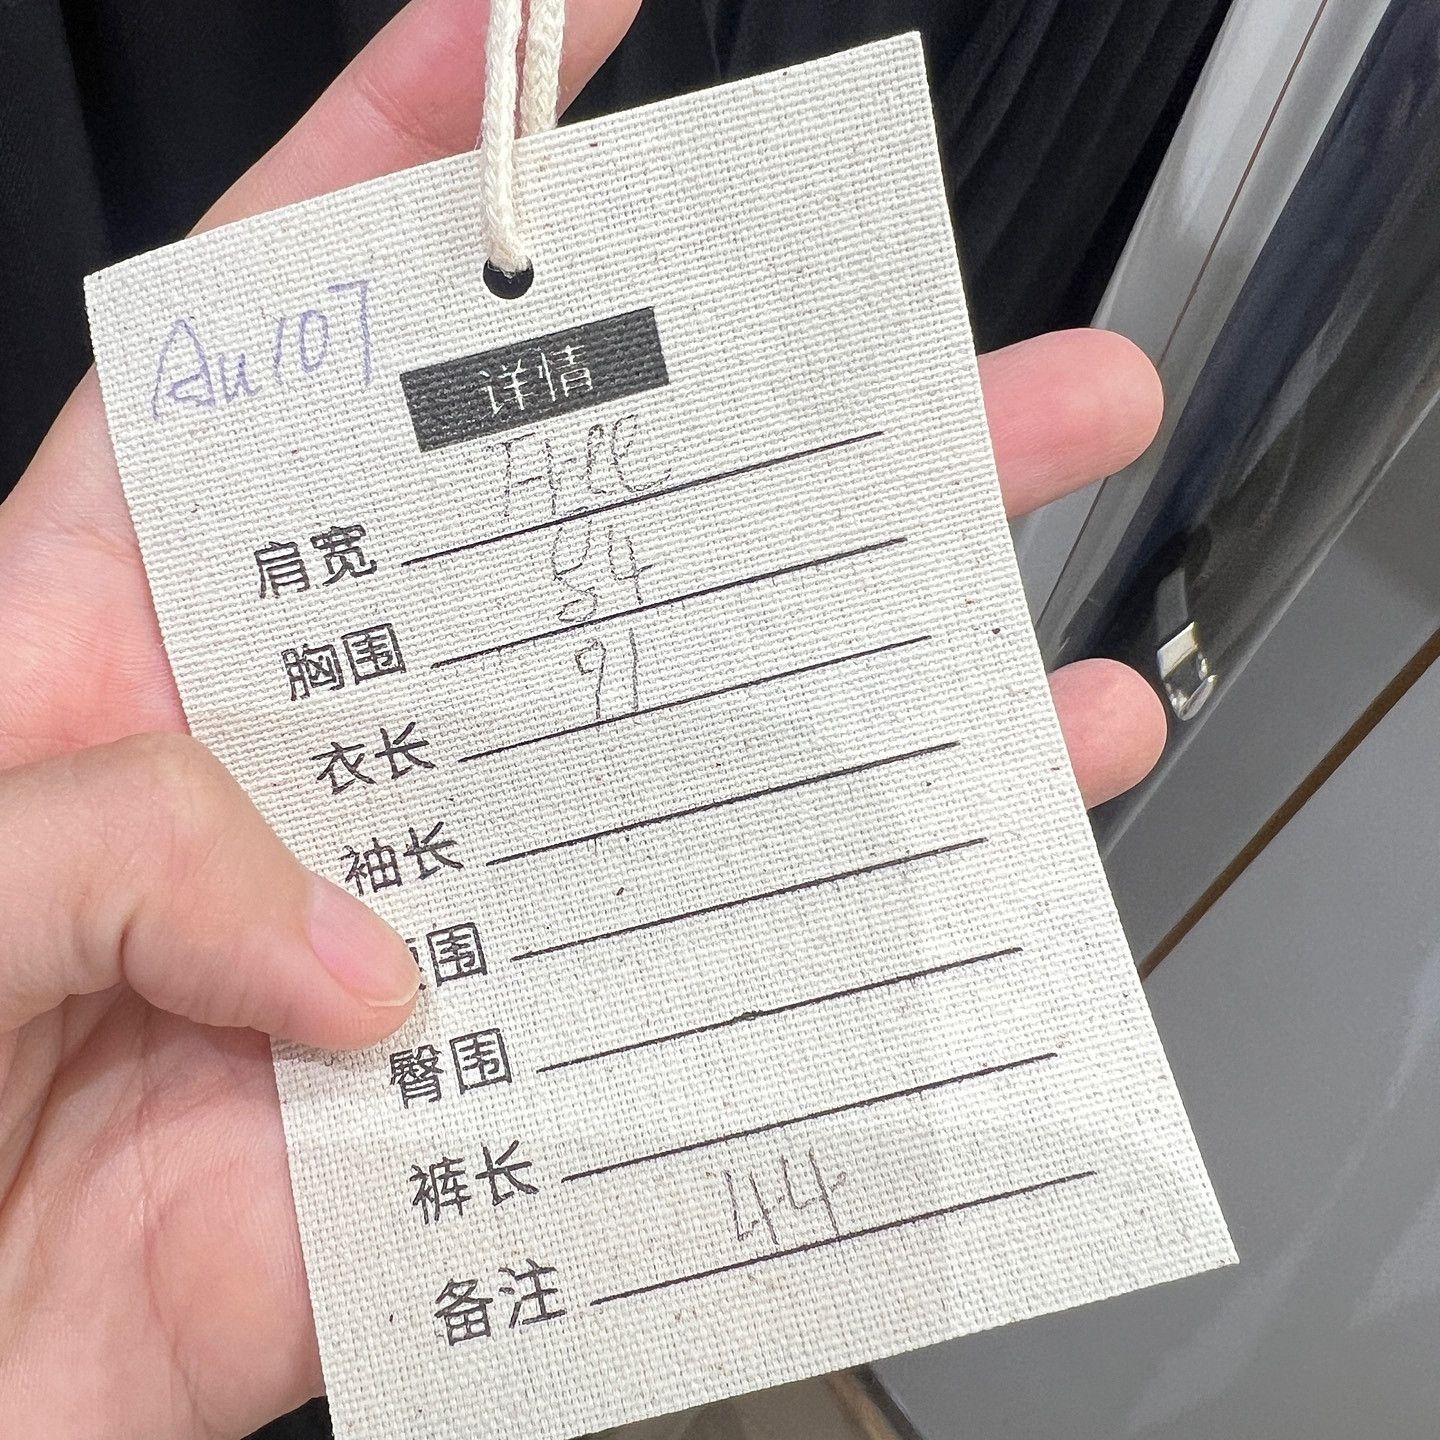 Au107
详情
肩宽 Free
胸围 84
衣长 91
袖长
围
臀围
裤长
备注 44